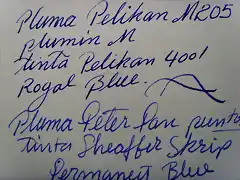 Pluma Pelikan M205
plumin M
tinta Pelikan 4001
Royal Blue.
Pluma Peter Pan punto
tinta Sheaffer Skrip
Permanent Blue